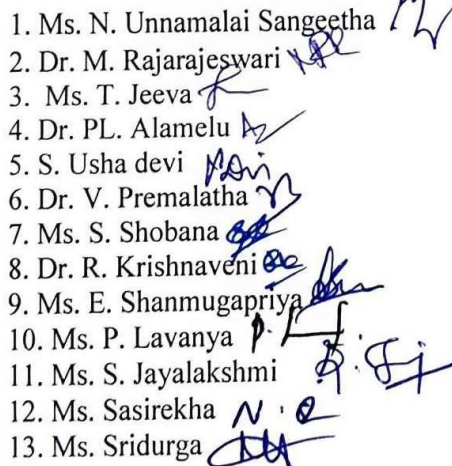 1. Ms. N. Unnamalai Sangeetha
2. Dr. M. Rajarajeswari
3. Ms. T. Jeeva
4. Dr. PL. Alamelu
5. S. Usha devi
6. Dr. V. Premalatha
7. Ms. S. Shobana
8. Dr. R. Krishnaveni
9. Ms. E. Shanmugapriya
10. Ms. P. Lavanya
11. Ms. S. Jayalakshmi
12. Ms. Sasirekha
13. Ms. Sridurga